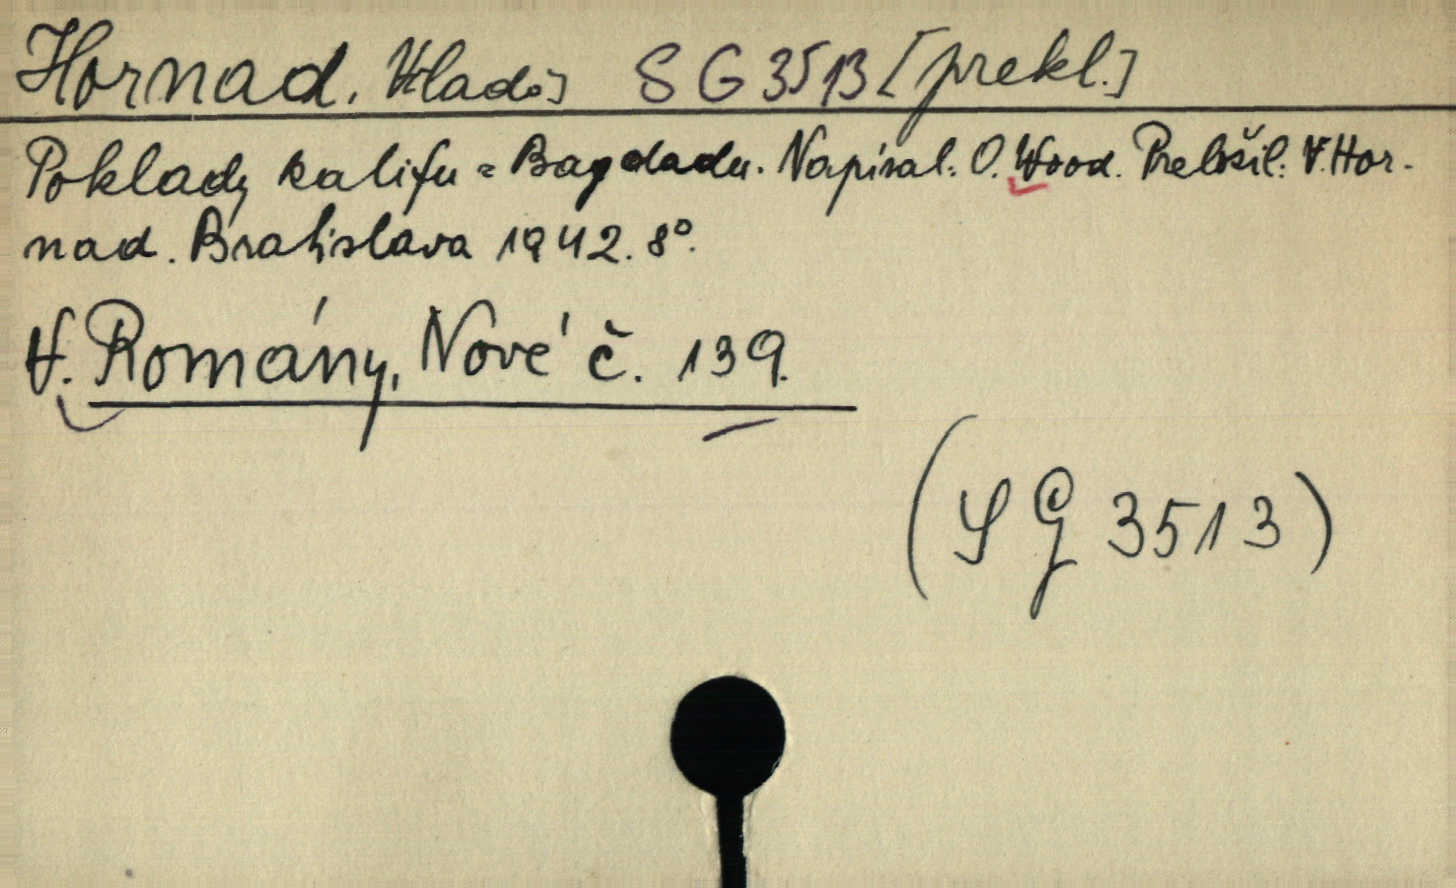 Hornad, Vlado] SG 3513 [prekl.]
Poklady kalifu z Bagdadu. Napísal: O. Wood. Preložil: V. Hor-
nad. Bratislava 1942. 8°.
V. Romány, Nové č. 139.
(SG 3513)